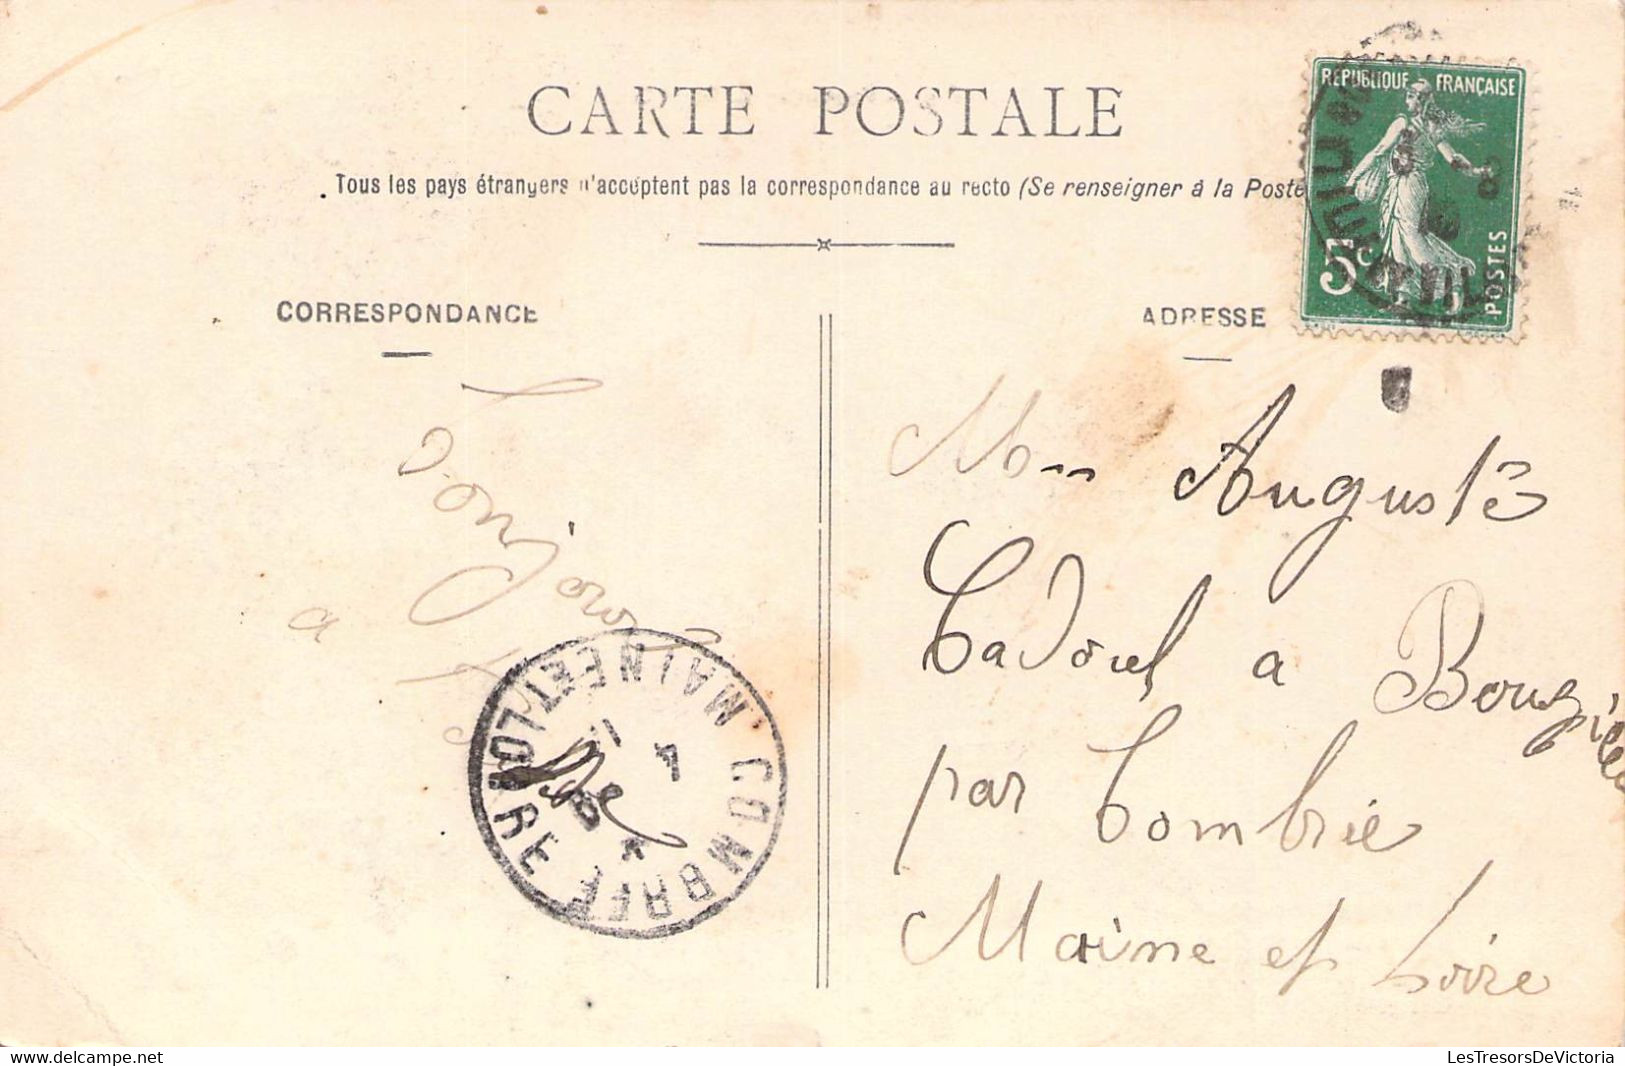 CARTE POSTALE
Tous les pays étrangers n'acceptent pas la correspondance au recto (Se renseigner à la Poste
REPUBLIQUE FRANÇAISE
5c
POSTES
CORRESPONDANCE
ADRESSE
Auguste
Cadorel a Bourg
par Combrée
Maine et Loire
Bonjour
a
COMBREE MAINE ET LOIRE
LesTresorsDeVictoria
www.delcampe.net